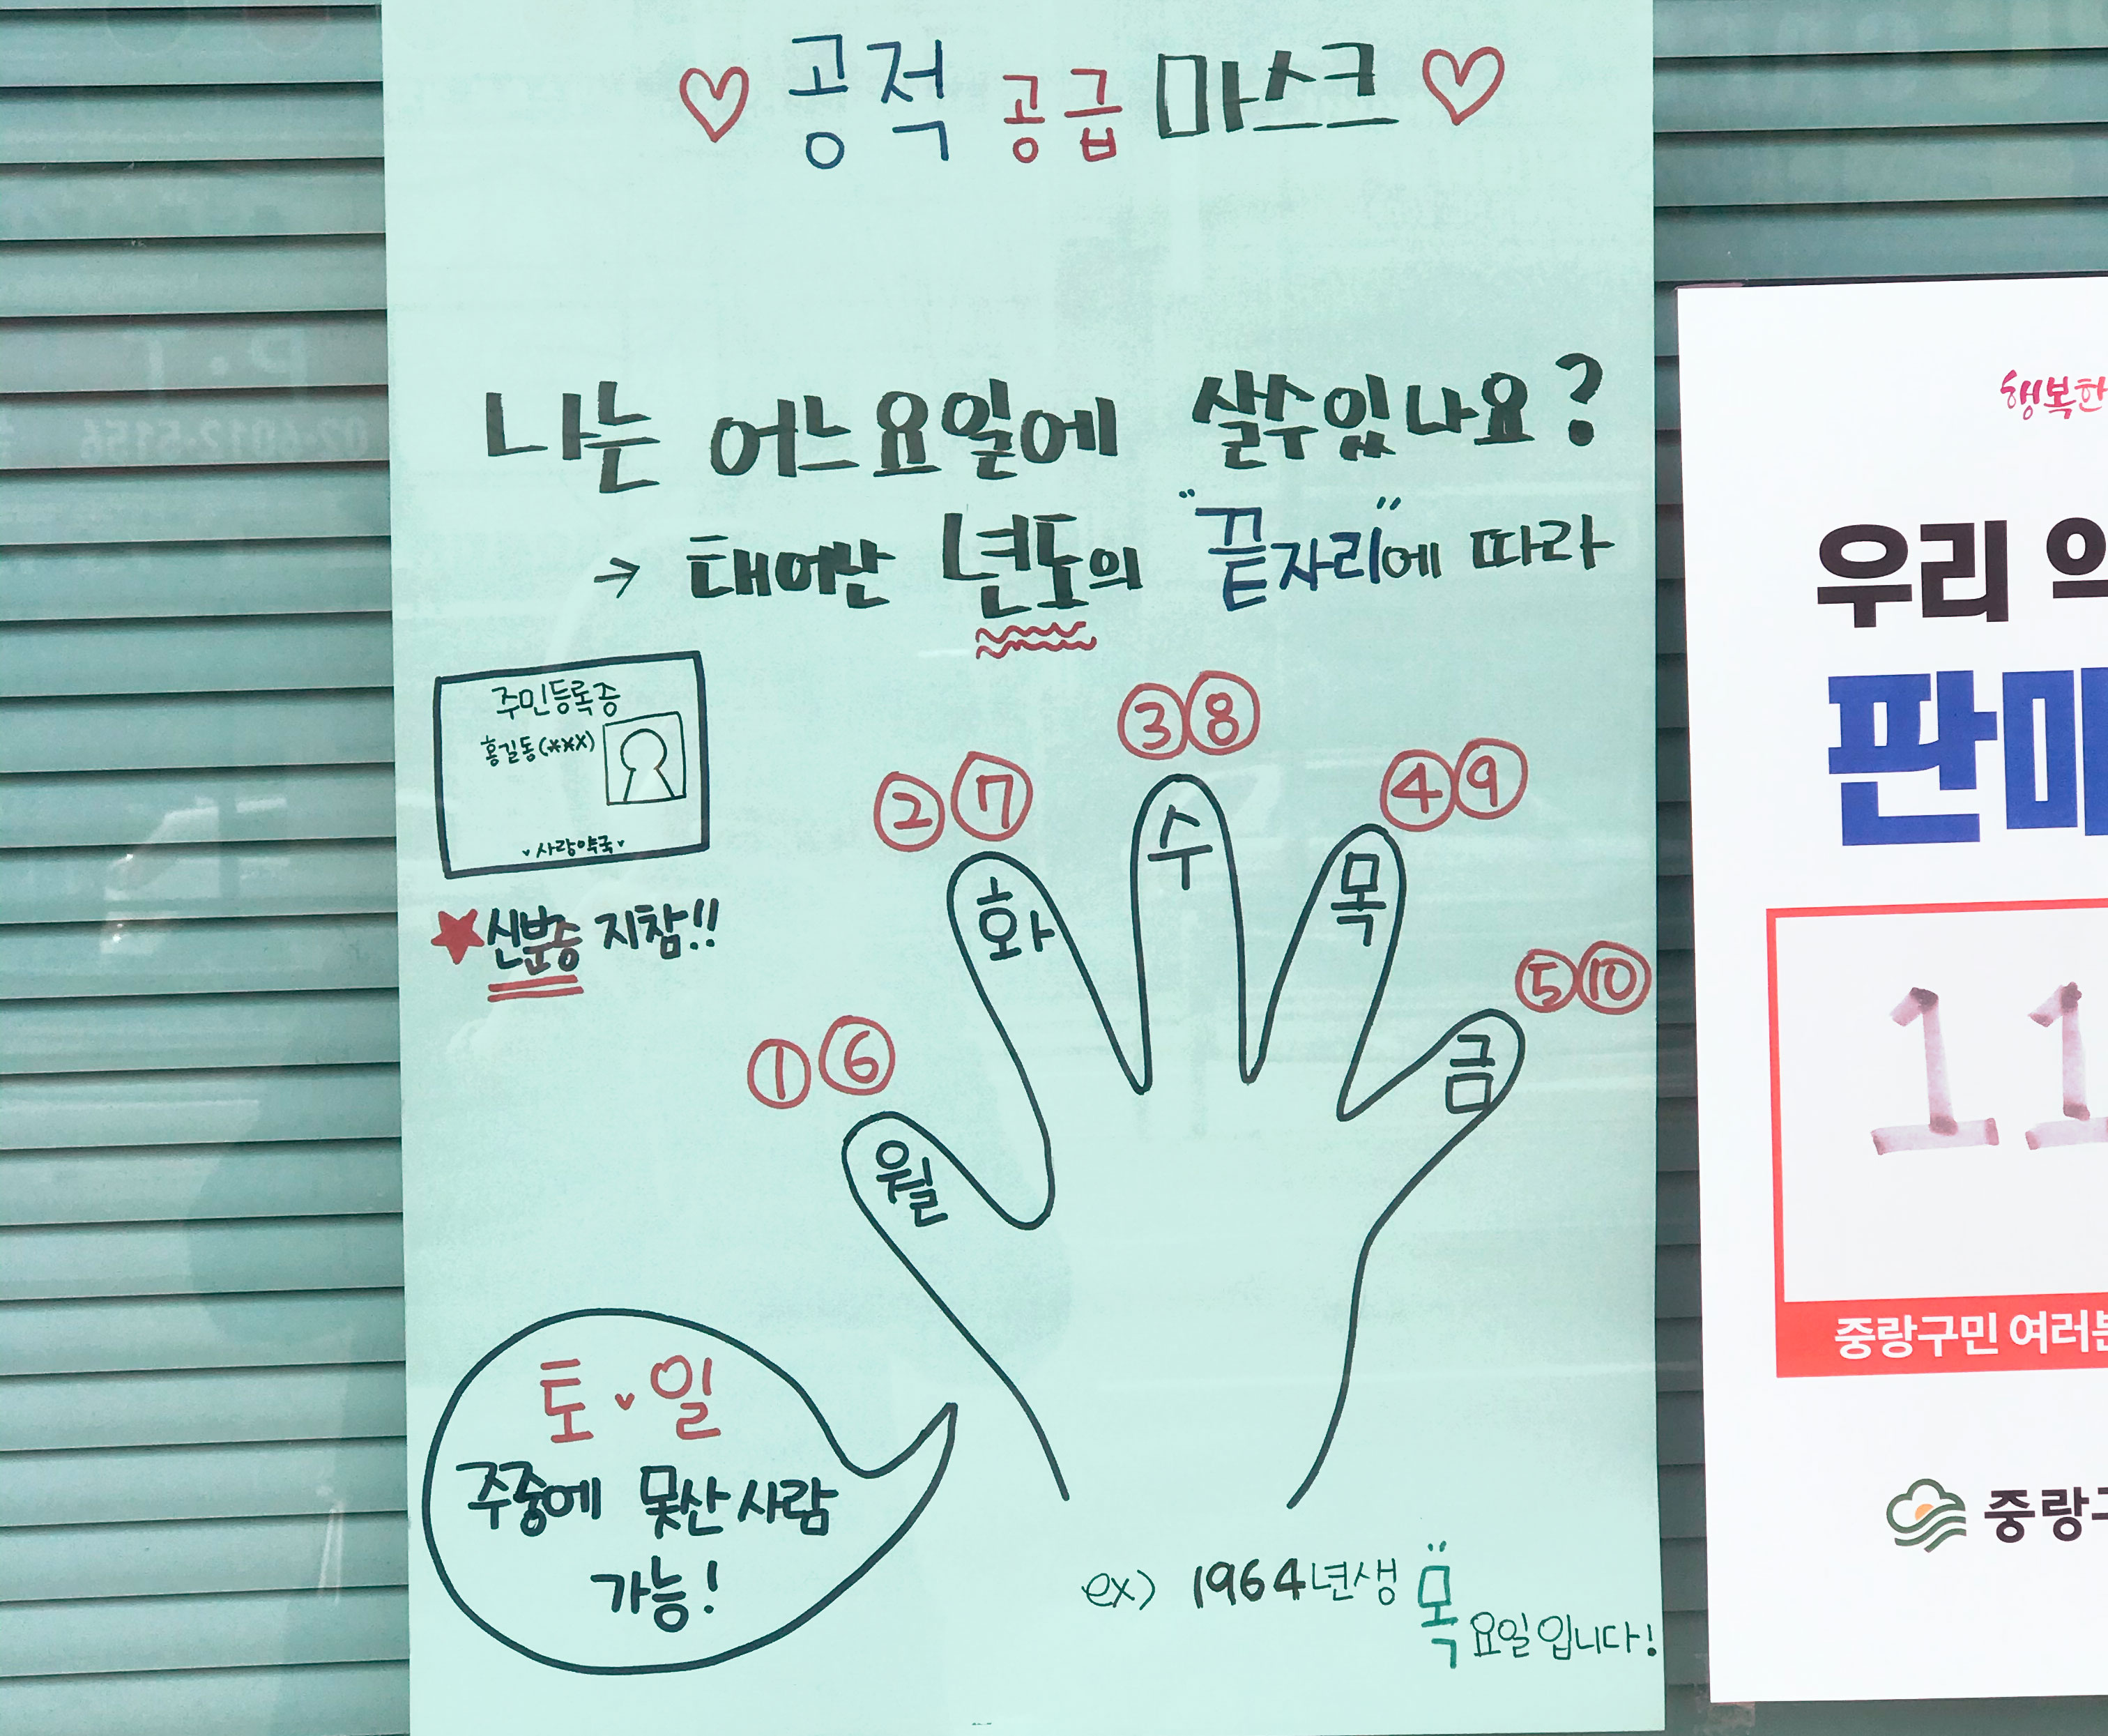 ♡ 공적 공급 마스크 ♡
나는 어느요일에 살수있나요?
→ 태어난 년도의 "끝자리"에 따라
주민등록증
홍길동(***)
사랑약국
★신분증 지참!!
① ⑥
월
② ⑦
화
③ ⑧
수
④ ⑨
목
⑤ ⑩
금
토 일
주중에 못산 사람
가능!
ex) 1964년생 목요일입니다!
행복한
우리
판매
11
중랑구민 여러분
중랑구
P.T
02-6012-5156